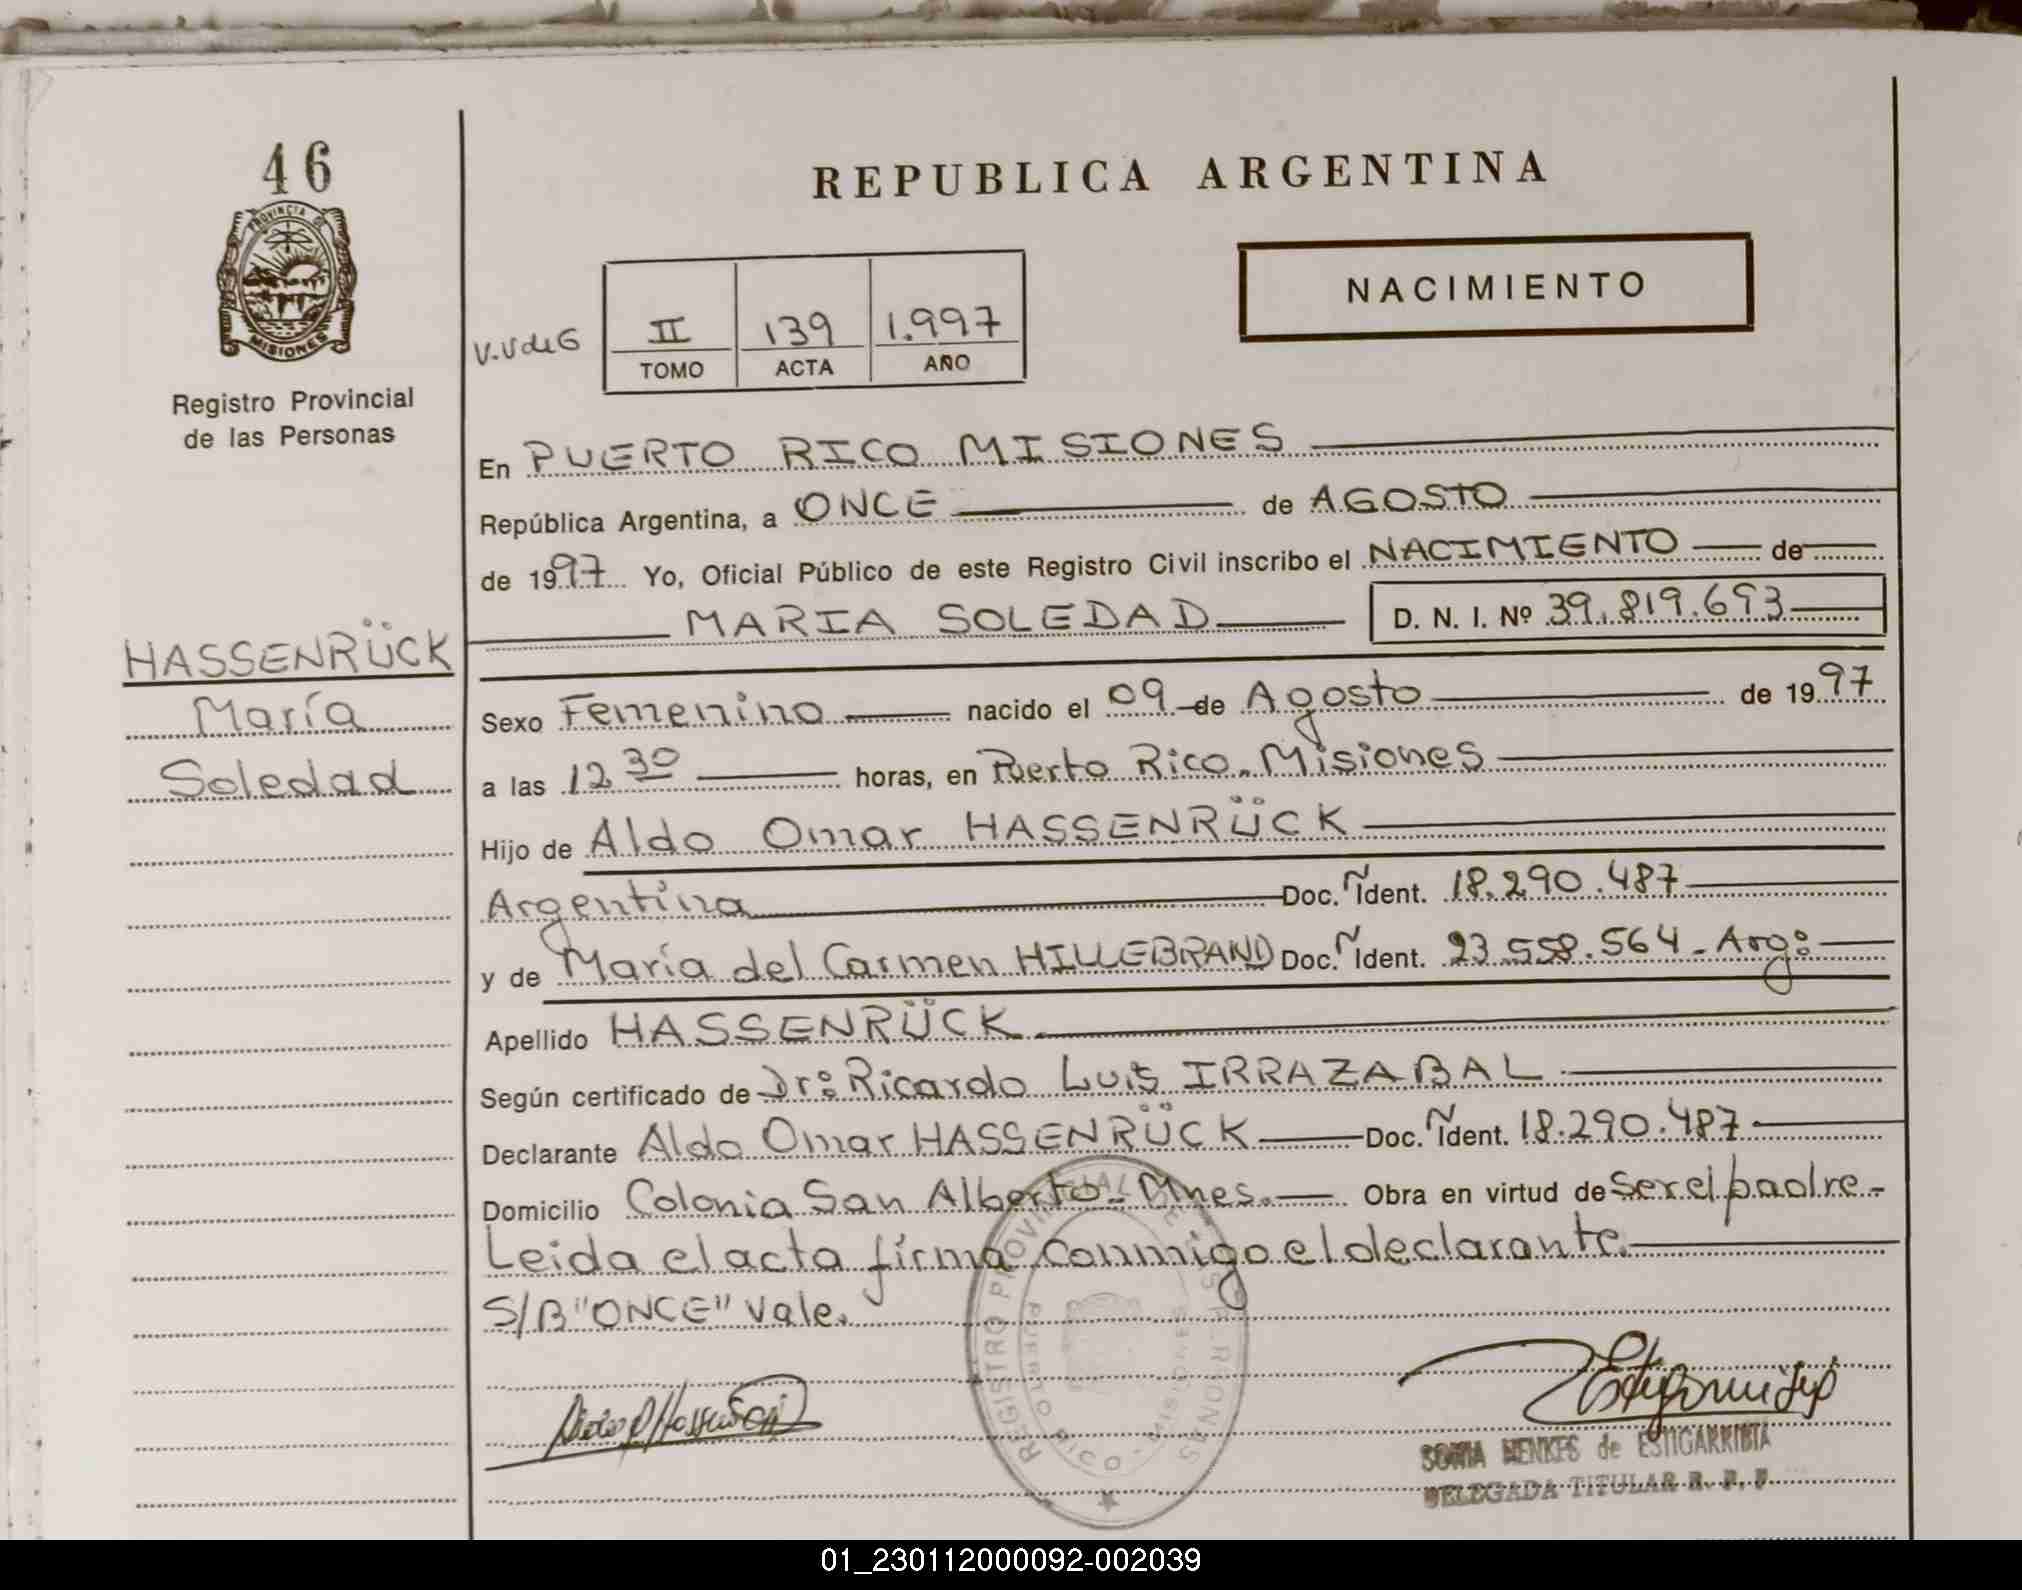 46
PROVINCIA DE
MISIONES
Registro Provincial
de las Personas
HASSENRÜCK
María
Soledad
REPUBLICA ARGENTINA
NACIMIENTO
V.V de G
II 139 1.997
TOMO ACTA AÑO
En PUERTO RICO MISIONES
República Argentina, a ONCE de AGOSTO
de 1997 Yo, Oficial Público de este Registro Civil inscribo el NACIMIENTO de
MARIA SOLEDAD D. N. I. Nº 39.819.693
Sexo Femenino nacido el 09 de Agosto de 1997
a las 12 30 horas, en Puerto Rico. Misiones
Hijo de Aldo Omar HASSENRÜCK
Argentina Doc. Ident. 18.290.487
y de María del Carmen HILLEBRAND Doc. Ident. 23.558.564 - Arg:
Apellido HASSENRÜCK
Según certificado de Dr: Ricardo Luis IRRAZABAL
Declarante Aldo Omar HASSENRÜCK Doc. Ident. 18.290.487
Domicilio Colonia San Alberto - Mnes. Obra en virtud de ser el padre -
Leida el acta firma conmigo el declarante.
S/B "ONCE" Vale.
REGISTRO PROVINCIAL DE LAS PERSONAS
PUERTO RICO - MISIONES
SONIA MENKES de ESTIGARRIBIA
DELEGADA TITULAR R. P. P
01_230112000092-002039